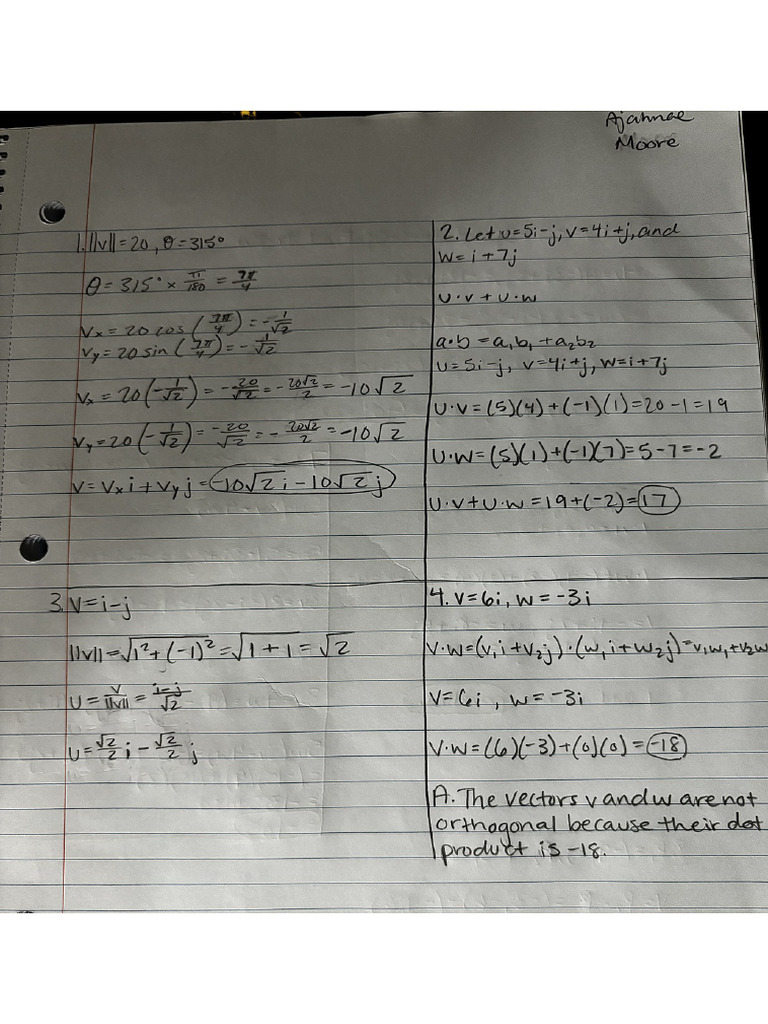 Ajahnae
Moore
1. ||v|| = 20, θ = 315°
θ = 315° × π/180 = 7π/4
Vx = 20 cos (7π/4) = -1/√2
Vy = 20 sin (7π/4) = -1/√2
Vx = 20(-1/√2) = -20/√2 = -20√2/2 = -10√2
Vy = 20(-1/√2) = -20/√2 = -20√2/2 = -10√2
V = Vxi + Vyj = -10√2i - 10√2j
2. Let u = 5i-j, v = 4i+j, and
w = i + 7j
u·v + u·w
a·b = a₁b₁ + a₂b₂
u = 5i-j, v = 4i+j, w = i + 7j
u·v = (5)(4) + (-1)(1) = 20 - 1 = 19
u·w = (5)(1) + (-1)(7) = 5 - 7 = -2
u·v + u·w = 19 + (-2) = 17
3. v = i-j
||v|| = √1² + (-1)² = √1 + 1 = √2
u = v/||v|| = i-j/√2
u = √2/2 i - √2/2 j
4. v = 6i, w = -3i
v·w = (v₁i + v₂j)·(w₁i + w₂j) = v₁w₁ + v₂w
v = 6i, w = -3i
v·w = (6)(-3) + (0)(0) = -18
A. The vectors v and w are not
orthogonal because their dot
product is -18.